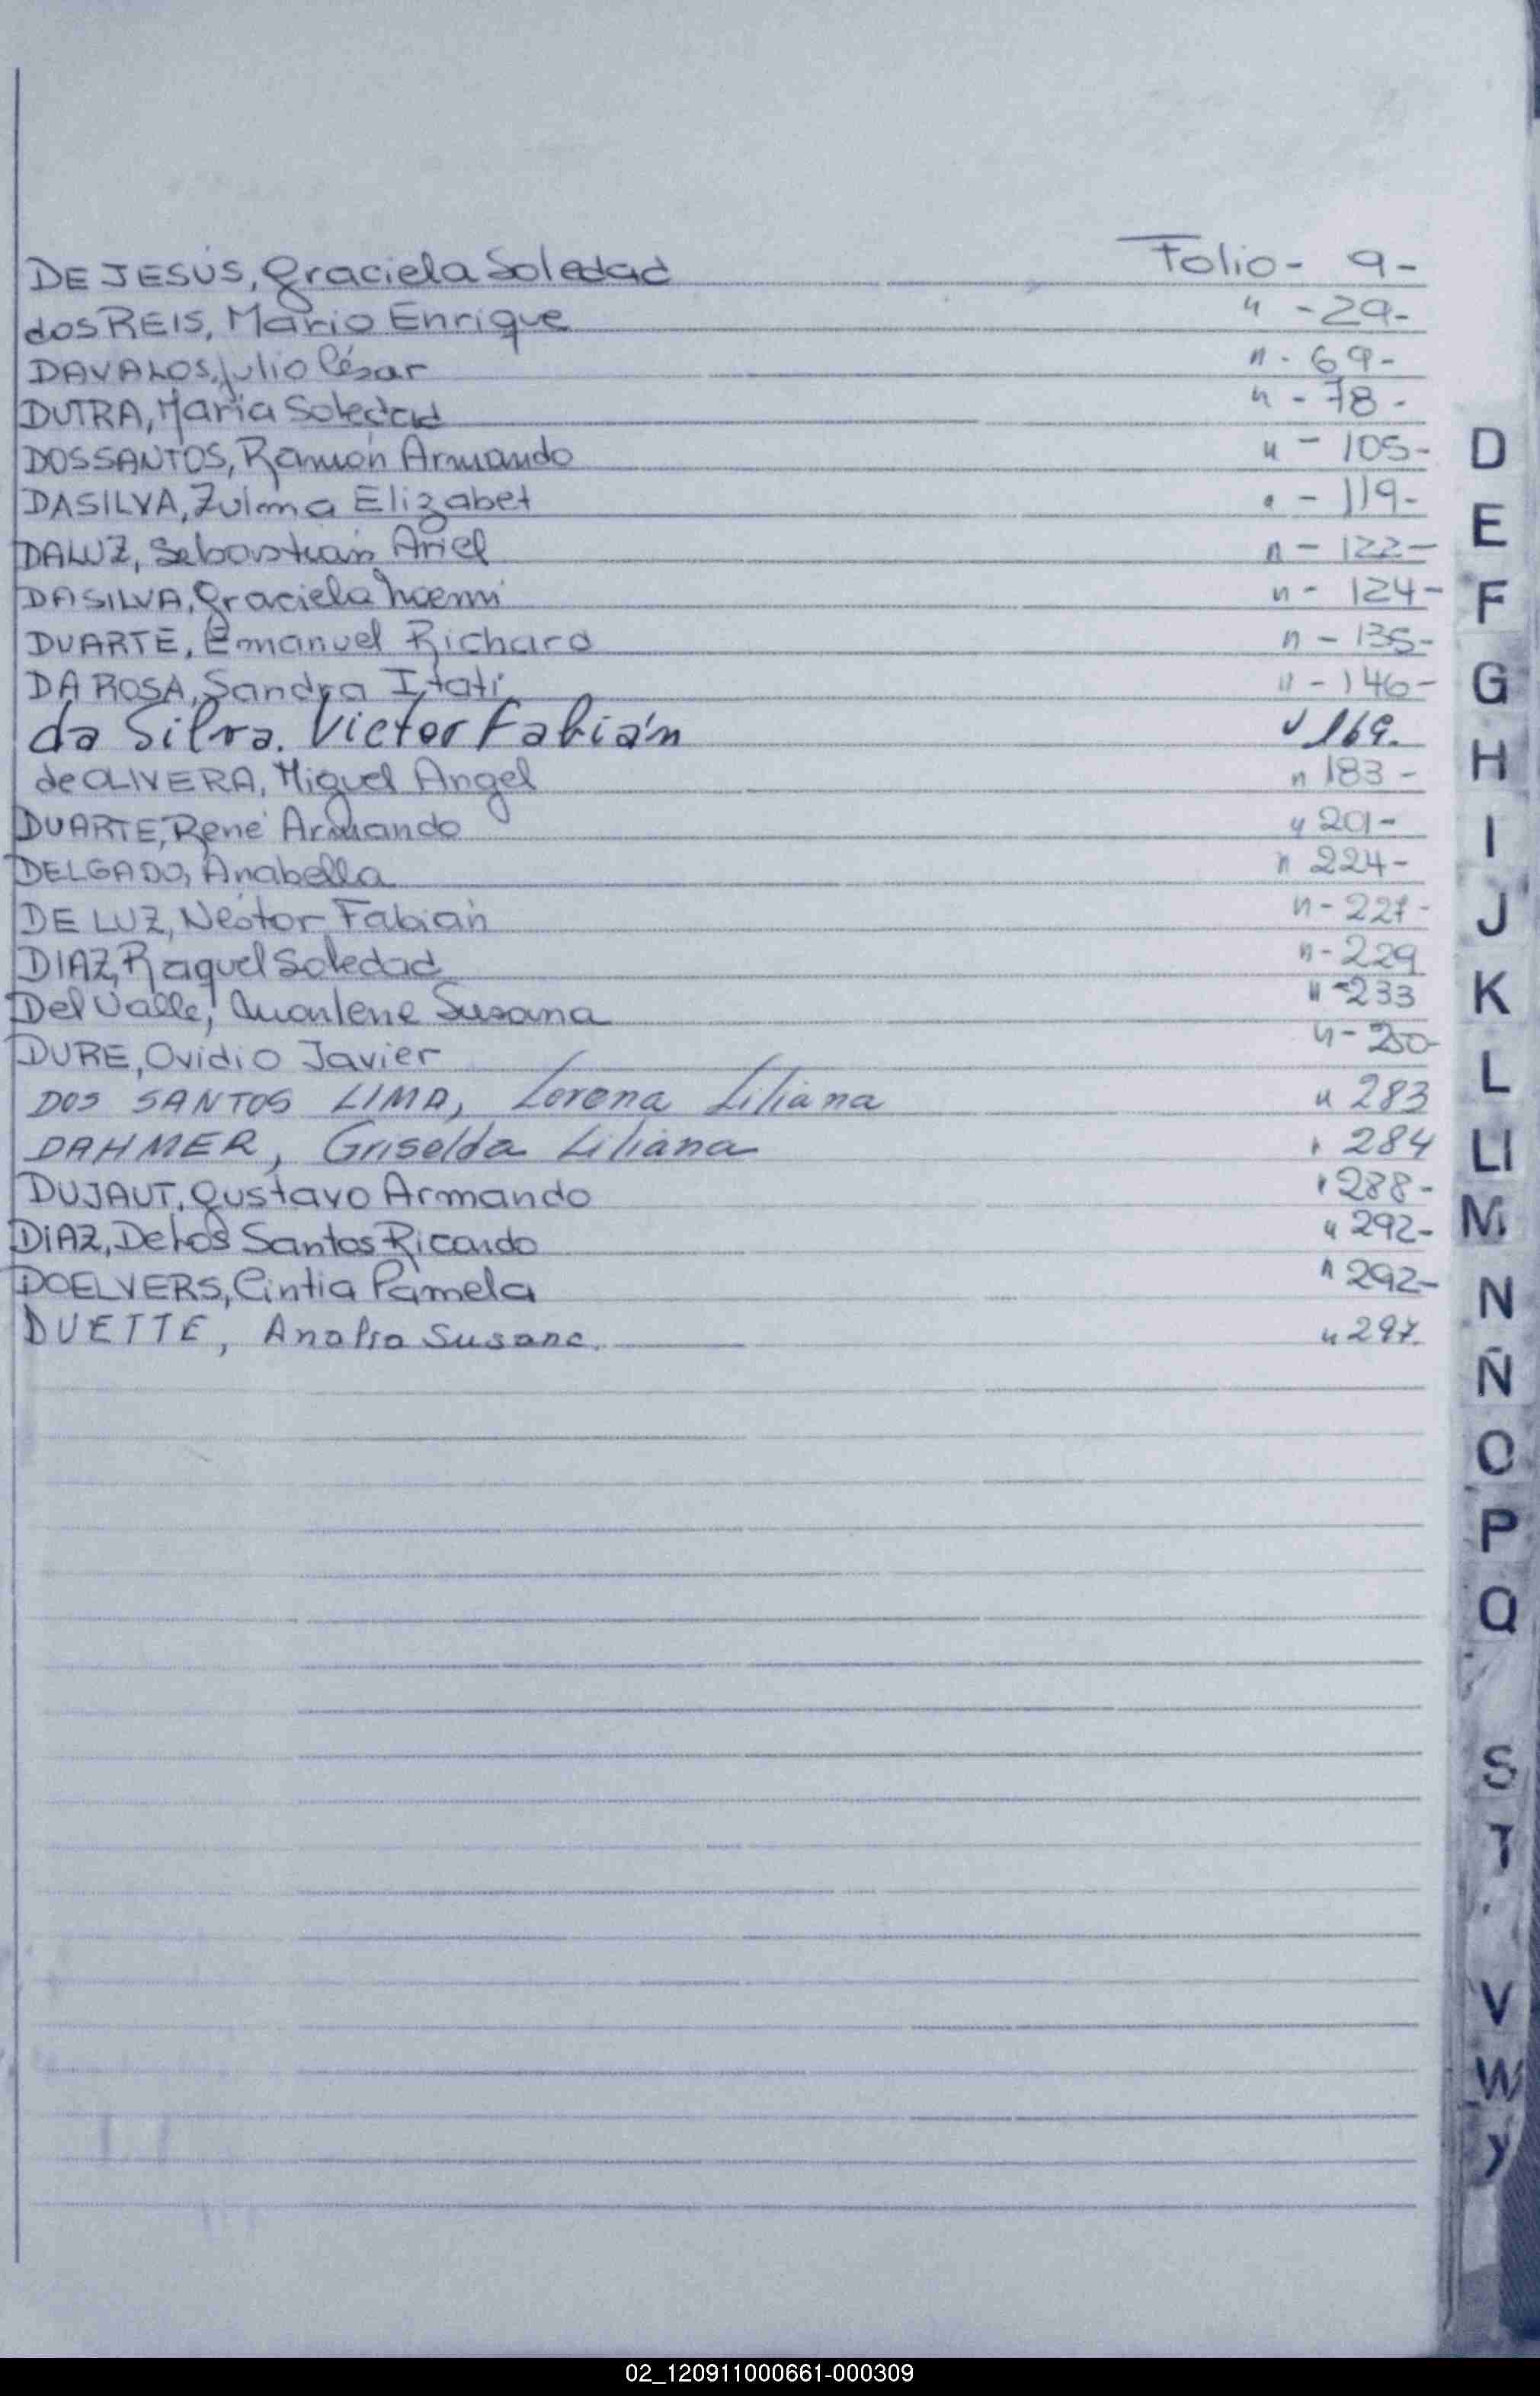 DE JESÚS, Graciela Soledad Folio - 9 -
dos REIS, Mario Enrique " - 29 -
DAVALOS, Julio César " - 69 -
DUTRA, María Soledad " - 78 -
DOSSANTOS, Ramón Armando " - 105 -
DASILVA, Zulma Elizabet " - 119 -
DALUZ, Sebastián Ariel " - 122 -
DASILVA, Graciela Noemi " - 124 -
DUARTE, Emanuel Richard " - 135 -
DA ROSA, Sandra Itatí " - 146 -
da Silva. Victor Fabián " 169.
de OLIVERA, Miguel Angel " 183 -
DUARTE, René Armando " 201 -
DELGADO, Anabella " 224 -
DE LUZ, Néstor Fabián " - 227 -
DIAZ, Raquel Soledad " - 229
Del Valle, Marlene Susana " - 233
DURE, Ovidio Javier " - 250 -
DOS SANTOS LIMA, Lorena Liliana " 283
DAHMER, Griselda Liliana " 284
DUJAUT, Gustavo Armando " 288 -
DiAZ, De Los Santos Ricardo " 292 -
DOELVERS, Cintia Pamela " 292 -
DUETTE, Analia Susana. " 297.
D
E
F
G
H
I
J
K
L
Ll
M
N
Ñ
O
P
Q
S
T
V
W
Y
02_120911000661-000309